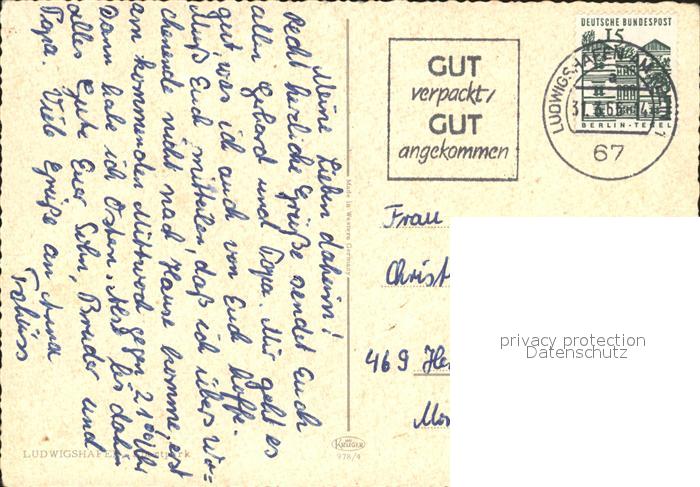 Meine Lieben daheim!
Recht herzliche Grüße sendet Euch
allen Gerhard und Papa. Mir geht es
gut, was ich auch von Euch hoffe.
Muß Euch mitteilen, daß ich übers Wo=
chenende nicht nach Hause komme, erst
am kommenden Mittwoch gegen 21 00 Uhr
Dann habe ich Ostern. Also bis dahin
alles Gute Euer Sohn, Bruder und
Papa. Viele Grüße an
Tschüss
LUDWIGSHAFEN
Made in Western Germany
KRÜGER
978/4
GUT
verpackt,
GUT
angekommen
DEUTSCHE BUNDESPOST
15
BERLIN-TEGEL
LUDWIGSHAFEN AM RHEIN
a
67
Frau
Christ
469
privacy protection
Datenschutz